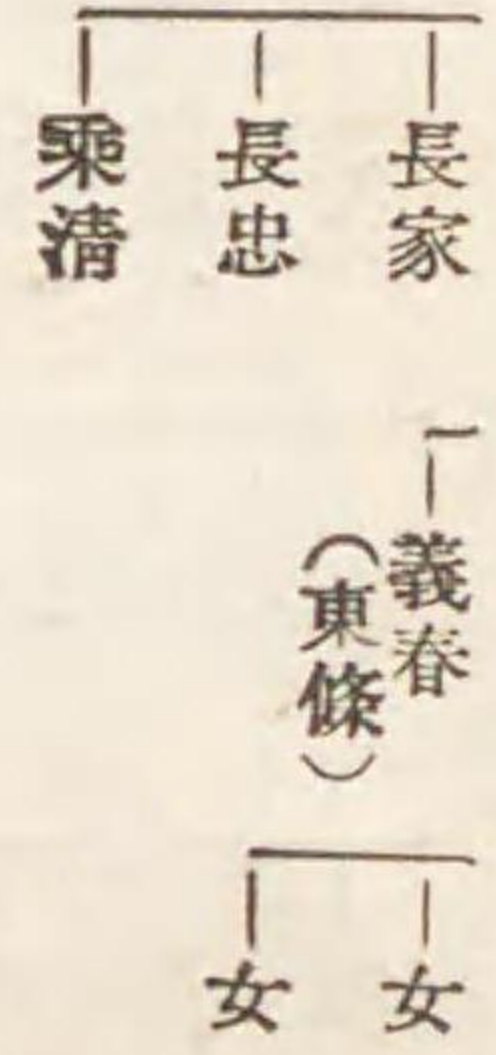 長家
長忠
乘清
義春
(東條)
女
女